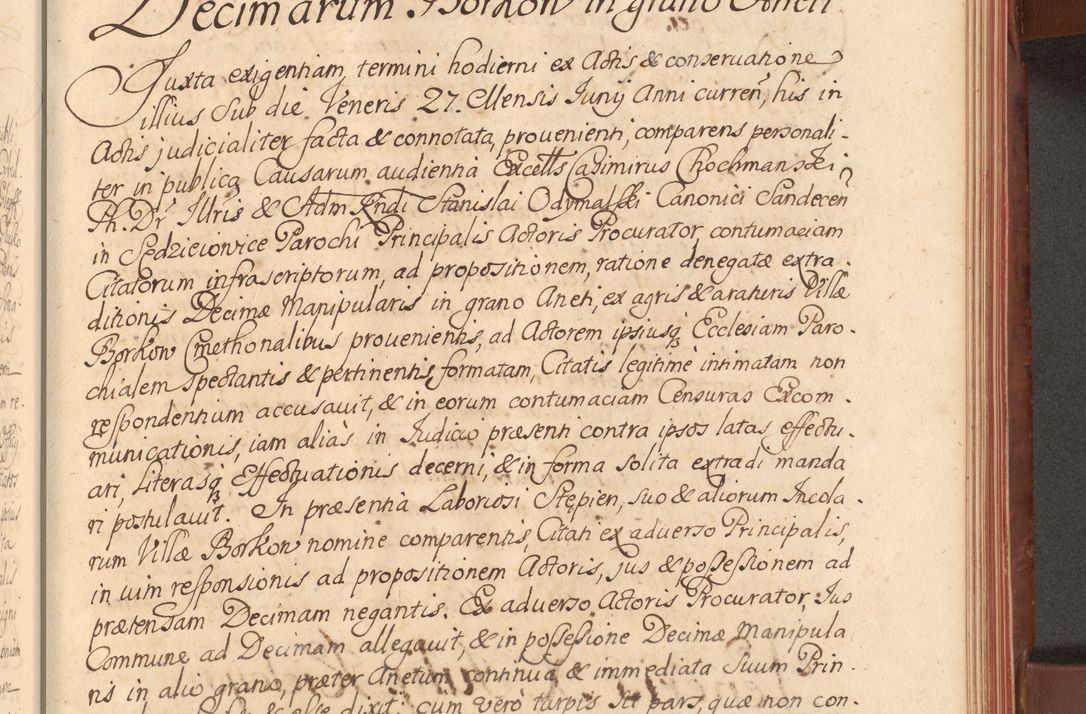 Decimarum Borkow in grano Aneti
Juxta exigentiam termini hodierni ex Actis & conservatione
illius sub die Veneris 27. Mensis Junij Anni curren, his in
Actis judicialiter facta & connotata, provenienti, comparens personali-
ter in publica Causarum audientia Excells Casimirus Chochmanski
Ph. Dr Illris & Adm Rndi Stanislai Odymalski Canonici Sandecen
in Sedzieiowice Parochi Principalis Actoris Procurator, contumaciam
Citatorum infrascriptorum, ad propositionem, ratione denegatæ extra-
ditionis Decimæ Manipularis in grano Aneti, ex agris & araturis Villæ
Borkow Cmethonalibus provenientis, ad Actorem ipsiusq Ecclesiam Paro-
chialem spectantis & pertinentis, formatam, Citatis legitime intimatam non
respondentium accusavit, & in eorum contumaciam Censuras Excom-
municationis, iam alias in Judicio præsenti contra ipsos latas effectu-
ari, Literasq Effectuationis decerni, & in forma solita extradi manda
ri postulavit. In præsentia Laboriosi Stepien, suo & aliorum Incola-
rum Villæ Borkow nomine comparentis, Citati ex adverso Principalis,
in vim responsionis ad propositionem Actoris, jus & possessionem ad
prætensam Decimam negantis. Ex adverso Actoris Procurator, Jus
Commune ad Decimam allegavit, & in possesione Decimæ Manipula
ris in alio grano, præter Anetum continua & immediata suum Prin-
& esse dixit; cum vero turpis sit pars, quæ non con-